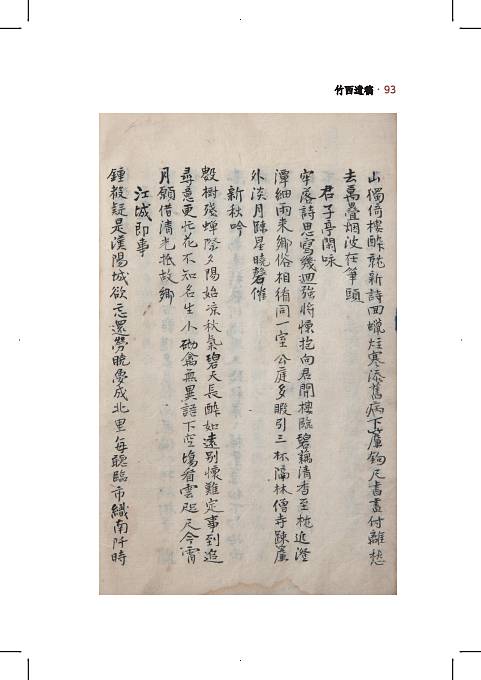 竹西遺稿 · 93
山獨倚樓醉就新詩面蠟炷寒添舊病下簾鉤尺書盡付離愁
去萬疊烟波在筆頭
君子亭閑咏
牢落詩思寫幾廻強將懷抱向君開樓臨碧藕清香至地近澄
潭細雨來鄉俗相循同一室公庭多暇引三杯隔林僧寺踈簾
外淡月踈星曉磬催
新秋吟
數樹殘蟬際夕陽始凉秋氣碧天長醉如遠別懷難定事到追
尋意更忙花不知名生小砌禽無異語下空塲看雲咫尺今宵
月願借清光抵故鄉
江城即事
鍾殘疑是漢陽城欲忘還勞晩夢成北里每聽臨市織南阡時